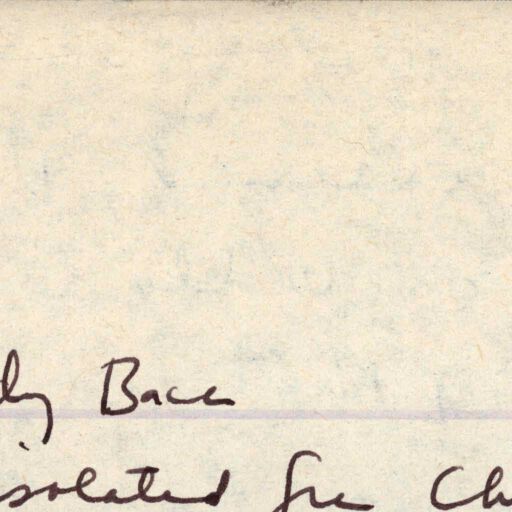 ly Bacc
isolated fre Ch